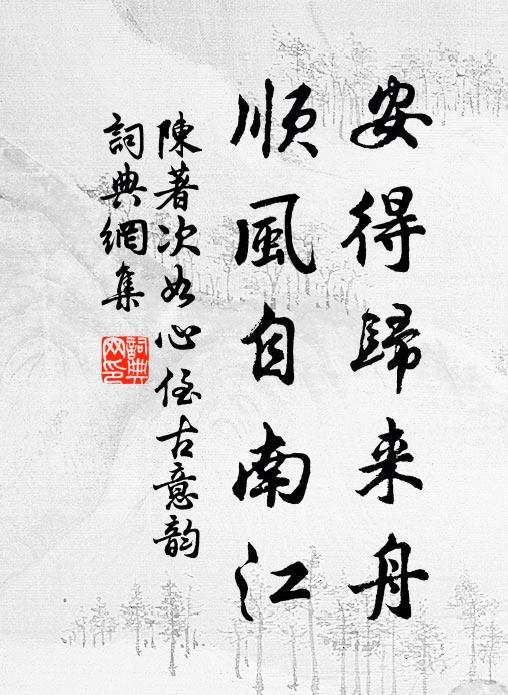 安得歸来舟
順風自南江
陳著次如心侄古意韵
詞典網集
詞典網印